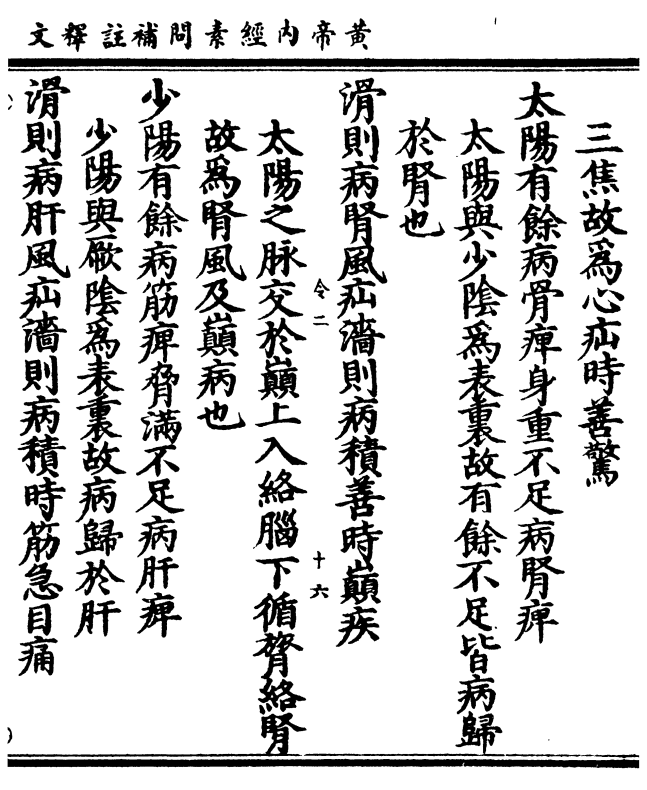 黃帝內經素問補註釋文
三焦故爲心疝時善驚
太陽有餘病骨痺身重不足病腎痺
太陽與少陰爲表裏故有餘不足皆病歸
於腎也
滑則病腎風疝濇則病積善時巔疾
令二
十六
太陽之脉交於巔上入絡腦下循膂絡腎
故爲腎風及巔病也
少陽有餘病筋痺脅滿不足病肝痺
少陽與厥陰爲表裏故病歸於肝
滑則病肝風疝濇則病積時筋急目痛